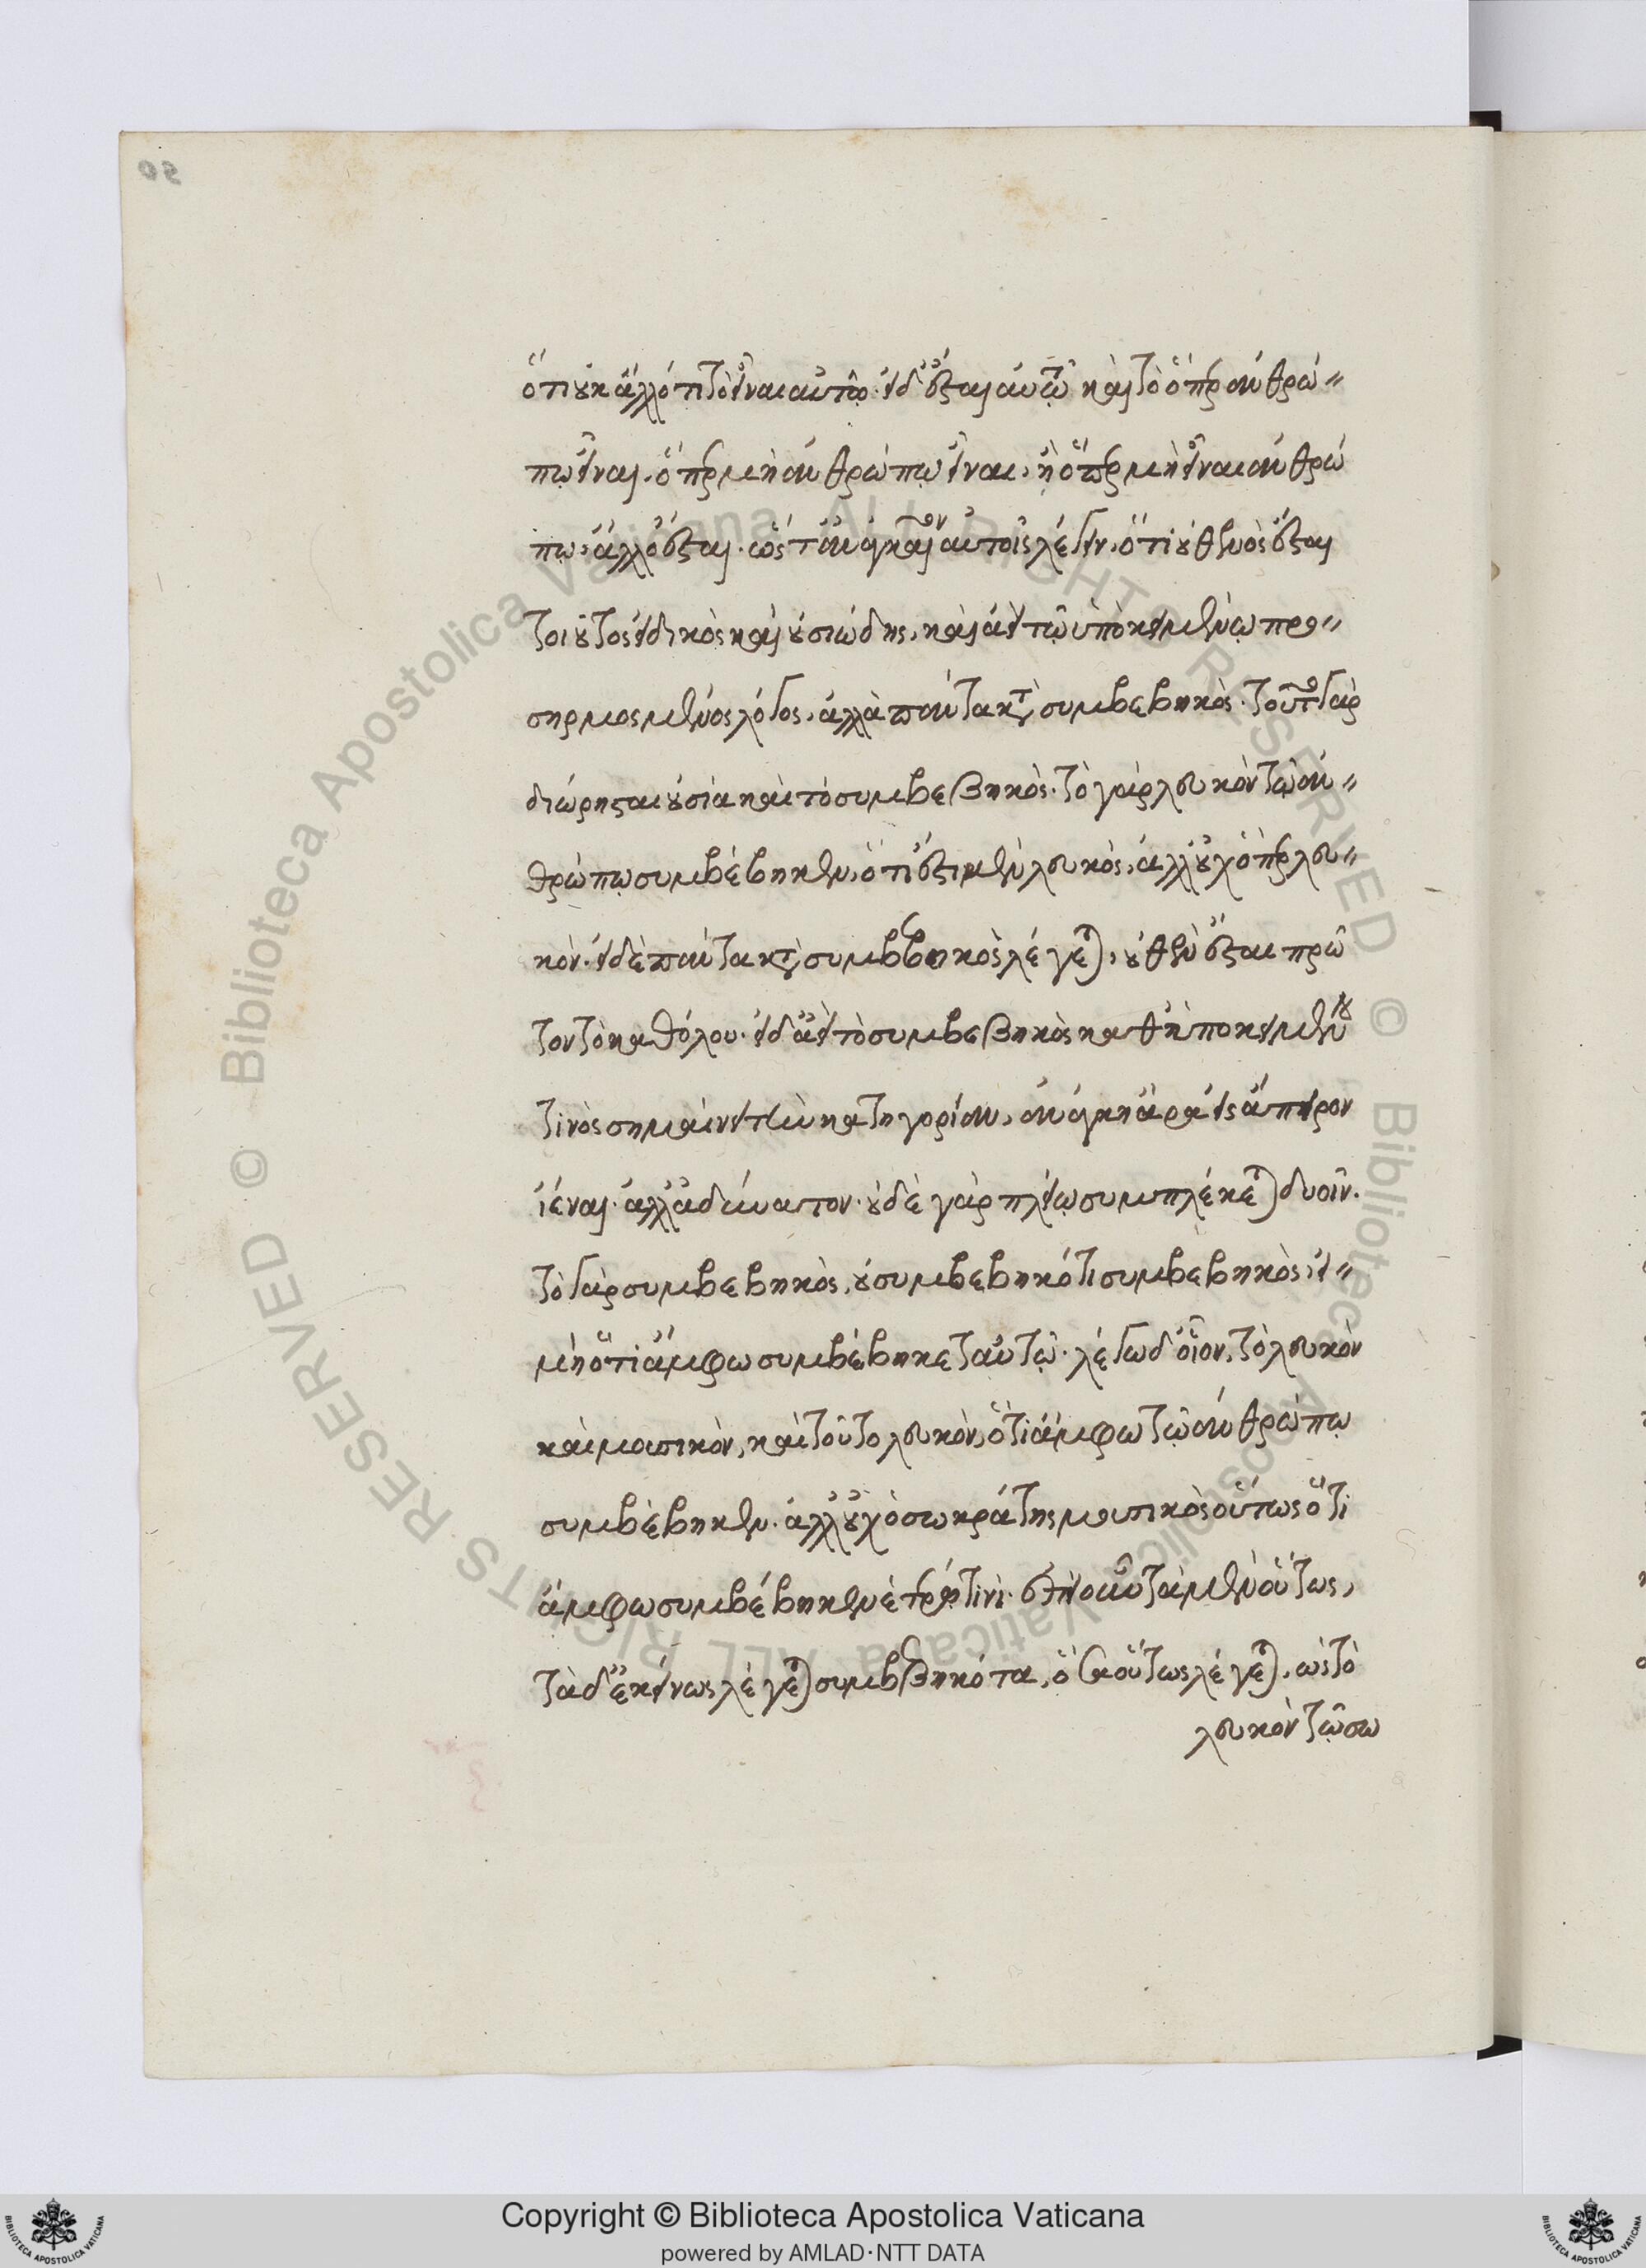 ὅτι οὐκ ἄλλό τι τὸ εἶναι αὐτῷ. εἰ δ' ἔσται αὐτῷ καὶ τὸ ὅπερ ἀνθρώ〃
πῳ εἶναι, ὅπερ μὴ ἀνθρώπῳ εἶναι, ἢ ὅπερ μὴ εἶναι ἀνθρώ
πῳ, ἄλλο ἔσται. ὥστ' ἀναγκαῖον αὐτοῖς λέγειν, ὅτι οὐθενὸς ἔσται
τοιοῦτος εἰδικὸς καὶ οὐσιώδης, καὶ ἀεὶ τῷ ὑποκειμένῳ προ〃
σηρμοσμένος λόγος, ἀλλὰ πάντα κατὰ συμβεβηκός. τούτῳ γὰρ
διώρισται οὐσία καὶ τὸ συμβεβηκός. τὸ γὰρ λευκὸν τῷ ἀν〃
θρώπῳ συμβέβηκεν, ὅτι ἔστι μὲν λευκός, ἀλλ' οὐχ ὅπερ λευ〃
κόν. εἰ δὲ πάντα κατὰ συμβεβηκὸς λέγεται, οὐθὲν ἔσται πρῶ
τον τὸ καθόλου. εἰ δ' ἀεὶ τὸ συμβεβηκὸς καθ' ὑποκειμένου
τινὸς σημαίνει τὴν κατηγορίαν, ἀνάγκη ἄρα εἰς ἄπειρον
ἰέναι. ἀλλ' ἀδύνατον. οὐδὲ γὰρ πλείω συμπλέκεται δυοῖν.
τὸ γὰρ συμβεβηκός, οὐ συμβεβηκότι συμβεβηκός, εἰ〃
μὴ ὅτι ἄμφω συμβέβηκε ταὐτῷ. λέγω δ' οἷον, τὸ λευκὸν
καὶ μουσικόν, καὶ τοῦτο λευκόν, ὅτι ἄμφω τῷ ἀνθρώπῳ
συμβέβηκεν. ἀλλ' οὐχ ὁ σωκράτης μουσικὸς οὕτως ὅτι
ἄμφω συμβέβηκεν ἑτέρῳ τινί. ἐπεὶ οὖν τὰ μὲν οὕτως,
τὰ δ' ἐκείνως λέγεται συμβεβηκότα, ὅσα οὕτως λέγεται, ὡς τὸ
λευκὸν τῷ σω